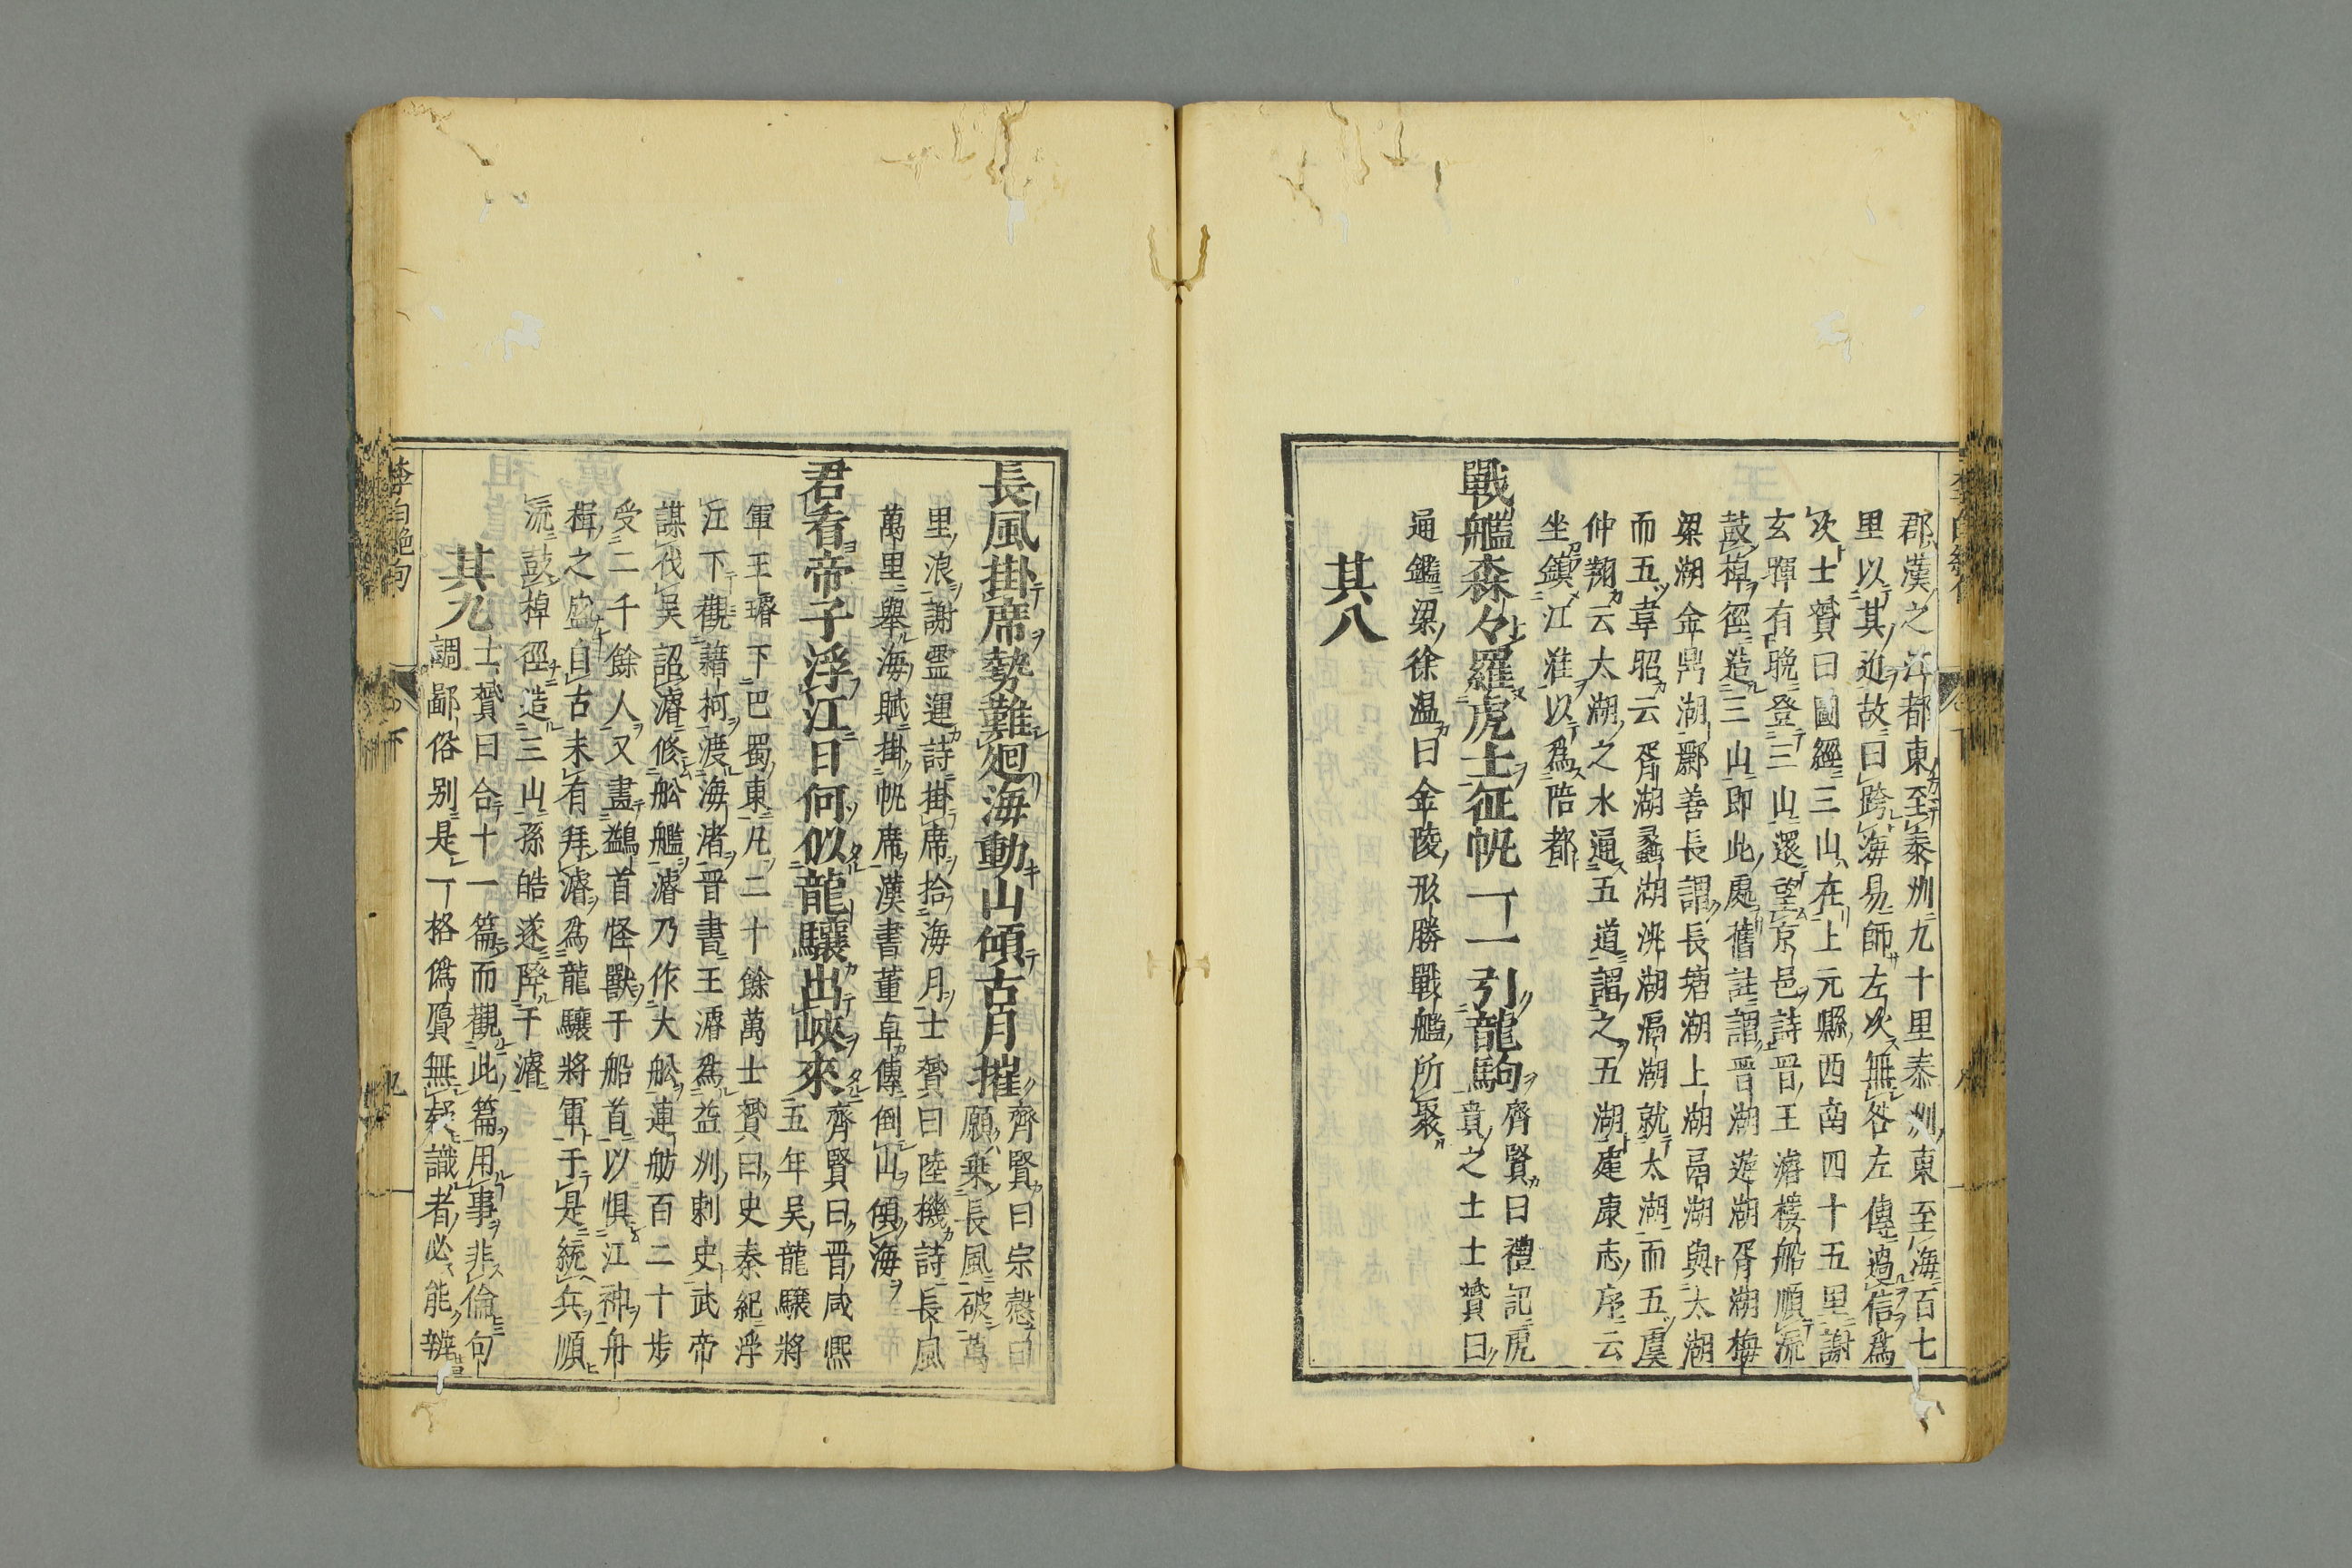 郡漢之江都東至泰州九十里泰州東至海百七
里以其迫故曰跨海易師左次無咎左傳過信爲
次士贇曰圖經三山在上元縣西南四十五里謝
玄暉有晩登三山還望京邑詩晉王濬樓船順流
鼓棹徑造三山即此處舊註謂晉湖遊湖胥湖梅
梁湖金鼎湖酈善長謂長塘湖上湖鬲湖與太湖
而五韋昭云胥湖蠡湖洮湖滆湖就太湖而五虞
仲翔云太湖之水通五道謂之五湖建康志序云
坐鎮江淮以爲陪都
戰艦森々羅虎士征帆一一引龍駒
齊賢曰禮記虎
賁之士士贇曰
通鑑梁徐温曰金陵形勝戰艦所聚
其八
長風掛席勢難廻海動山傾古月摧
齊賢曰宗愨曰
願乗長風破萬
里浪謝霊運詩掛席拾海月士贇曰陸機詩長風
萬里舉海賦掛帆席漢書董卓傳倒山傾海
君看帝子浮江日何似龍驤出峽來
齊賢曰晉咸熙
五年吴龍驤將
軍王濬下巴蜀東凡二十餘萬士贇曰史秦紀浮
江下觀藉柯渡海渚晉書王濬爲益州刺史武帝
謀伐吴詔濬修舩艦濬乃作大舩連舫百二十步
受二千餘人又畫鷁首怪獸于船首以懼江神舟
楫之盛自古未有拜濬爲龍驤將軍于是統兵順
流鼓棹徑造三山孫皓遂降于濬
其九
士贇曰合十一篇而觀此篇用事非倫句
調鄙俗别是一格僞贋無疑識者必能辨
李白絶句
下
九